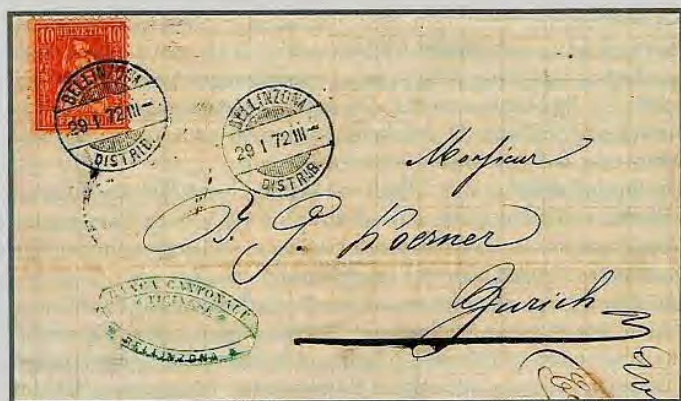 10 HELVETIA 10
BELLINZONA
29 I 72 III
DISTRIB.
BELLINZONA
29 I 72 III
DISTRIB.
Monsieur
J. G. Koerner
Zurich
BANCA CANTONALE
TICINESE
BELLINZONA